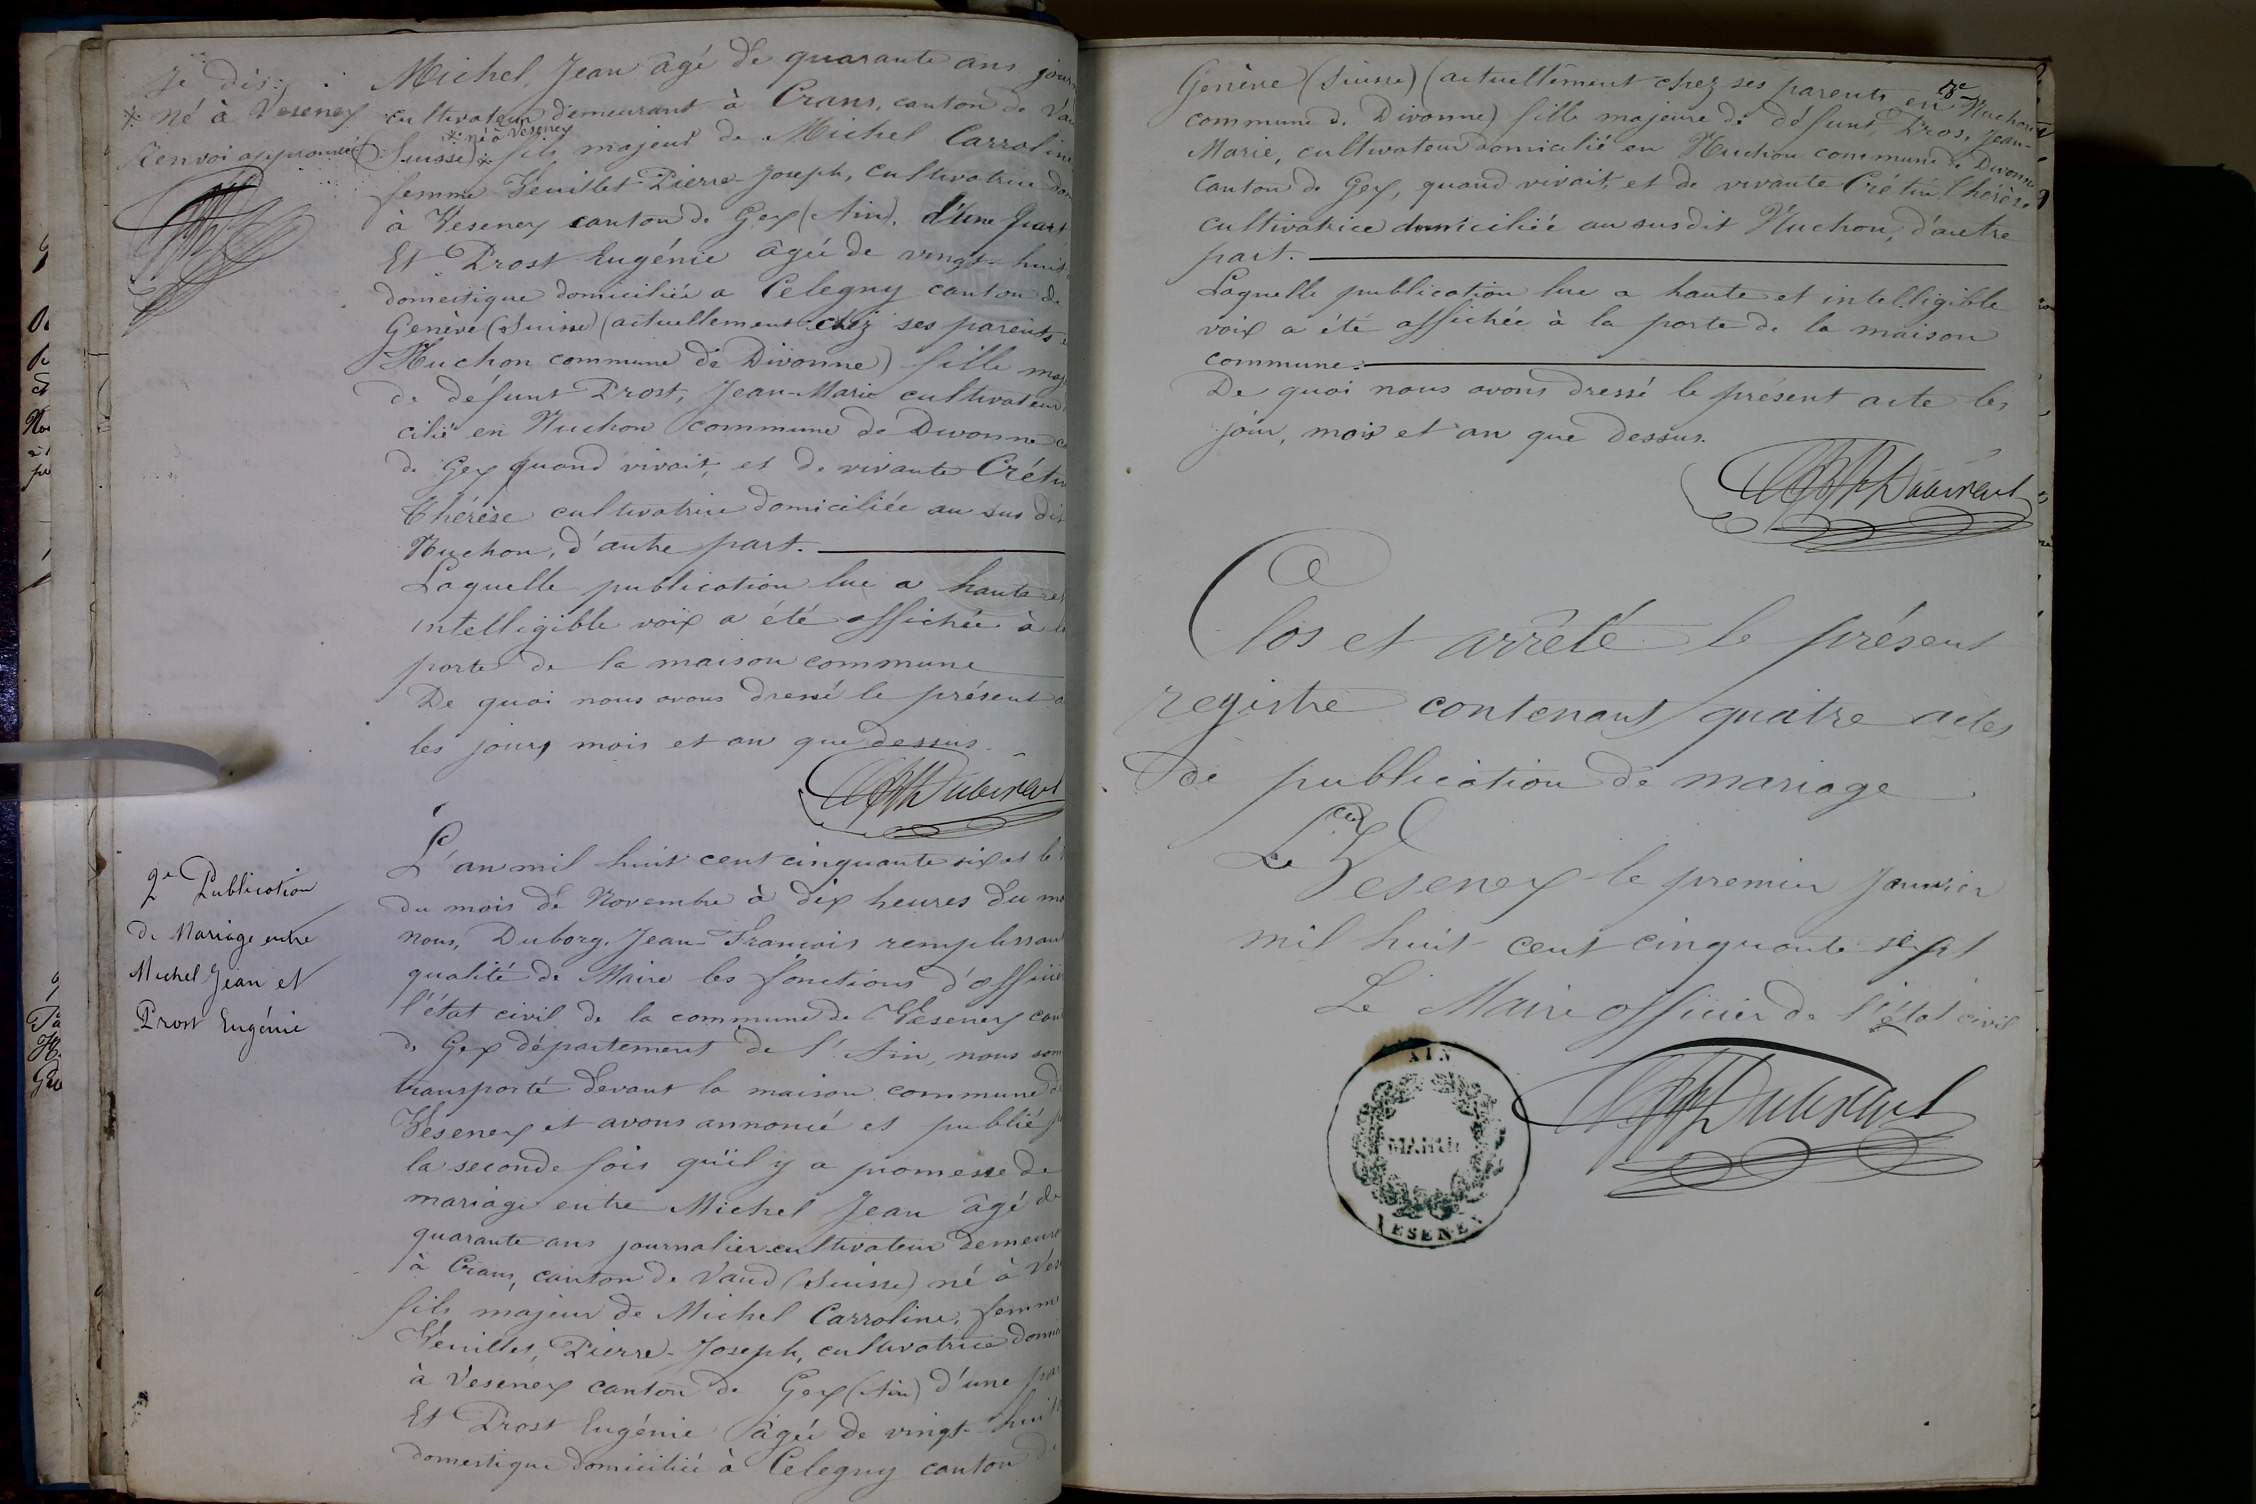 Je dis:
* né à Vesenex
Renvoi approuvé
Michel, Jean âgé de quarante ans
cultivateur demeurant à Crans, canton de
* né à Vesenex
(Suisse) * fils majeur de Michel Carroline
femme Veuillet Pierre-Joseph, cultivatrice
à Vesenex canton de Gex (Ain). d'une part
Et Prost Eugénie âgée de vingt-huit
domestique domiciliée a Celegny canton de
Genève (Suisse) (actuellement chez ses parents
Huchon commune de Divonne) fille
de défunt Prost, Jean-Marie cultivateur
cilié en Huchon commune de Divonne
de Gex quand vivait, et de vivante Crétin
Thérèse cultivatrice domiciliée au sus dit
Huchon, d'autre part.
Laquelle publication lue a haute et
intelligible voix a été affichée à la
porte de la maison commune
De quoi nous avons dressé le présent
les jour, mois et an que dessus.
2e Publication
de Mariage entre
Michel Jean et
Prost Eugénie
L'an mil huit cent cinquante six et le
du mois de Novembre à dix heures du
nous, Duborg, Jean-François remplissant
qualité de Maire les fonctions d'officier
l'état civil de la commune de Vesenex
de Gex département de l'Ain, nous
transporté devant la maison commune de
Vesenex et avons annoncé et publié
la seconde fois qu'il y a promesse de
mariage entre Michel Jean âgé de
quarante ans journalier cultivateur
à Crans, canton de Vaud (Suisse) né à
fils majeur de Michel Carroline, femme
Veuillet, Pierre-Joseph, cultivatrice
à Vesenex canton de Gex (Ain) d'une
Et Prost Eugénie âgée de vingt-huit
domestique domiciliée à Celegny canton de
Genève (Suisse) (actuellement chez ses parents en Huchon
commune de Divonne) fille majeure de défunt Prost, Jean-
Marie, cultivateur domicilié en Huchon commune de Divonne
canton de Gex, quand vivait, et de vivante Crétin Thérèse
cultivatrice domiciliée au susdit Huchon, d'autre
part.
Laquelle publication lue a haute et intelligible
voix a été affichée à la porte de la maison
commune.
De quoi nous avons dressé le présent acte les
jour, mois et an que dessus.
Clos et arrêté le présent
registre contenant quatre actes
de publication de mariage
Vesenex le premier Janvier
mil huit cent cinquante sept
Le Maire officier de l'état civil
AIN
MAIRIE
VESENEX